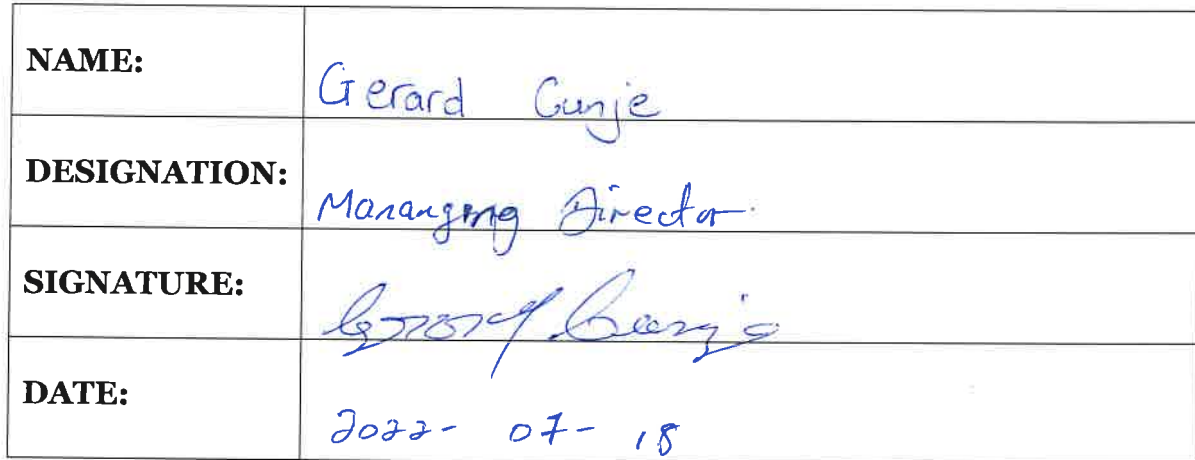 NAME: Gerard Gunje
DESIGNATION: Mananging Director
SIGNATURE: Gerard Gunje
DATE: 2022-07-18